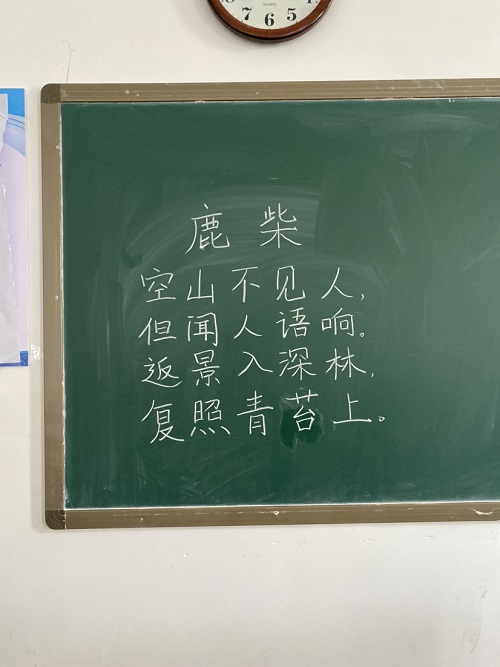 QUARTZ
7 6 5
鹿柴
空山不见人，
但闻人语响。
返景入深林，
复照青苔上。